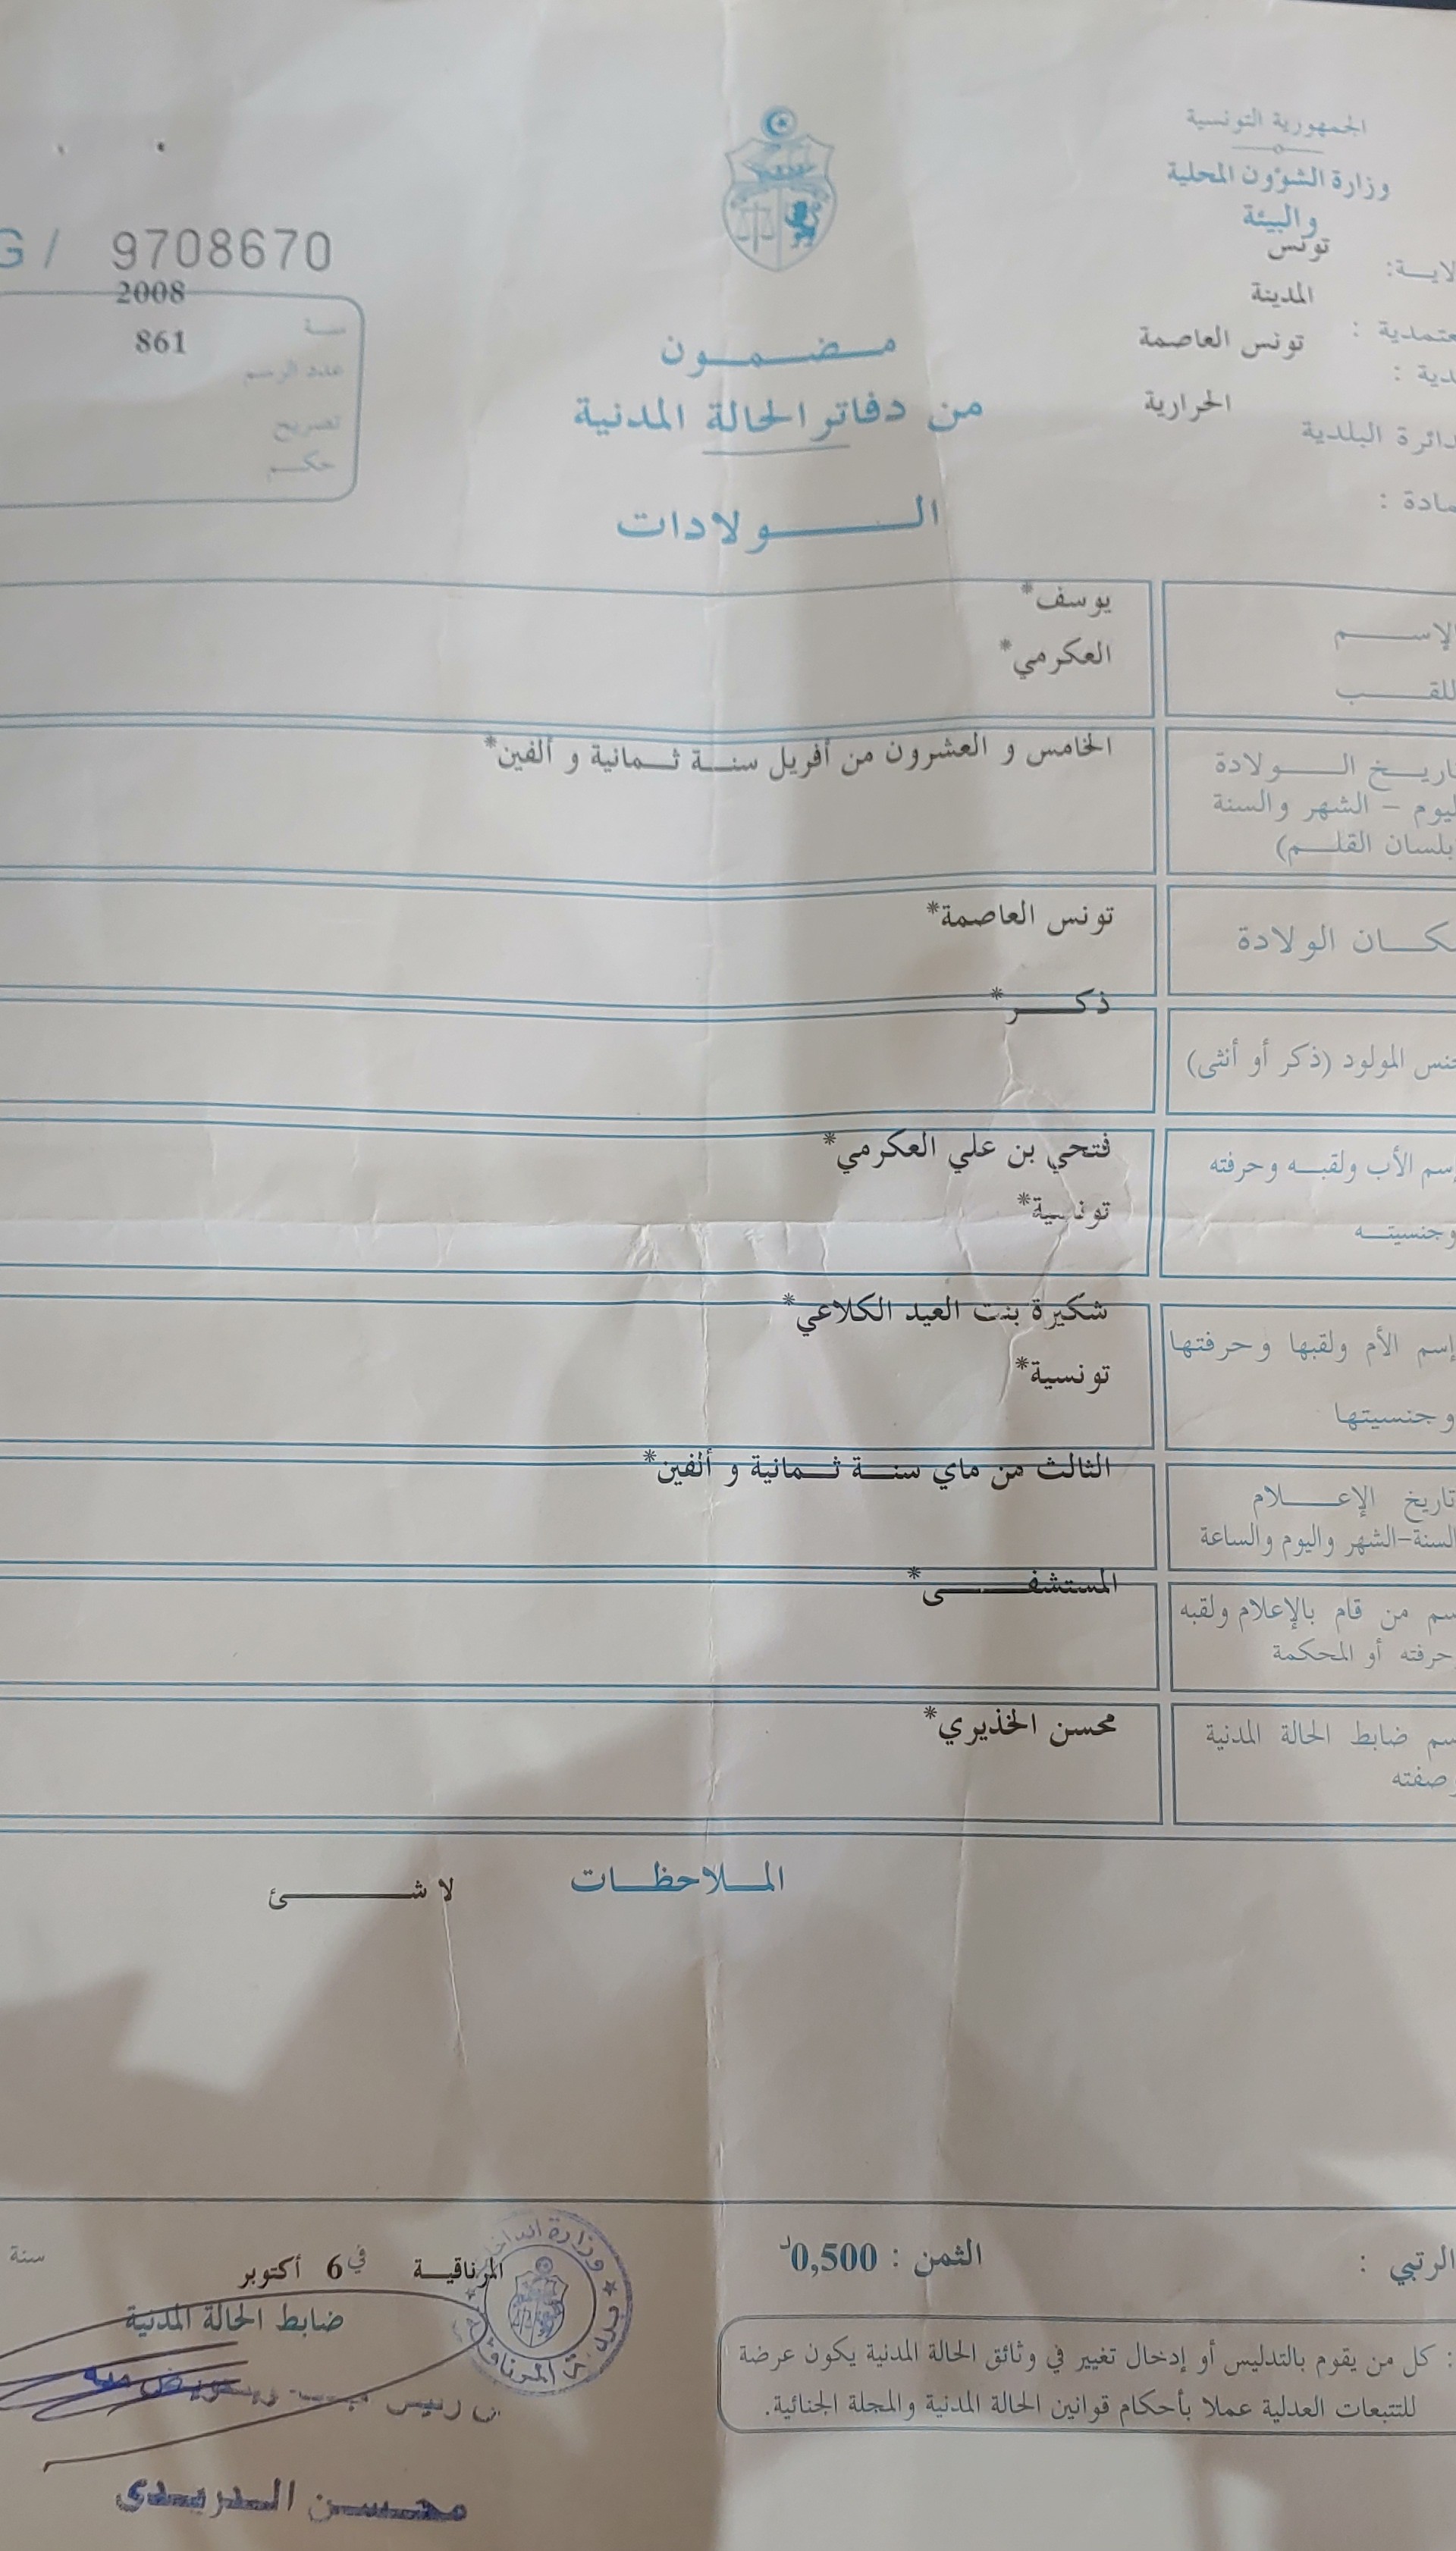 الجمهورية التونسية
وزارة الشؤون المحلية
والبيئة
تونس
المدينة
تونس العاصمة
الحرارية
دائرة البلدية
G / 9708670
سنة 2008
عدد الرسم 861
تصريح
حكم
مضمون
من دفاتر الحالة المدنية
الولادات
الإسم يوسف*
اللقب العكرمي*
تاريخ الولادة الخامس و العشرون من أفريل سنة ثمانية و ألفين*
اليوم - الشهر والسنة
بلسان القلم)
مكان الولادة تونس العاصمة*
جنس المولود (ذكر أو أنثى) ذكر*
إسم الأب ولقبه وحرفته فتحي بن علي العكرمي*
وجنسيته تونسية*
إسم الأم ولقبها وحرفتها شكيرة بنت العيد الكلاعي*
وجنسيتها تونسية*
تاريخ الإعلام الثالث من ماي سنة ثمانية و ألفين*
السنة-الشهر واليوم والساعة
إسم من قام بالإعلام ولقبه المستشفى*
وحرفته أو المحكمة
إسم ضابط الحالة المدنية محسن الخذيري*
وصفته
الملاحظات
لا شئ
الرتبي :
الثمن : 0,500د
المرناقية في 6 أكتوبر سنة
ضابط الحالة المدنية
: كل من يقوم بالتدليس أو إدخال تغيير في وثائق الحالة المدنية يكون عرضة
للتتبعات العدلية عملا بأحكام قوانين الحالة المدنية والمجلة الجنائية.
محسن الدريدي